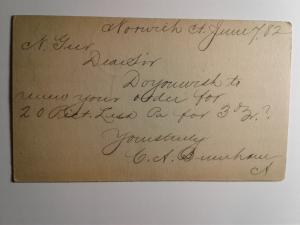 Norwich Ct. June 7, 82
N. Geer
Dear Sir
Do you wish to
renew your order for
20 for 3 dz.?
Yours truly
C. A.